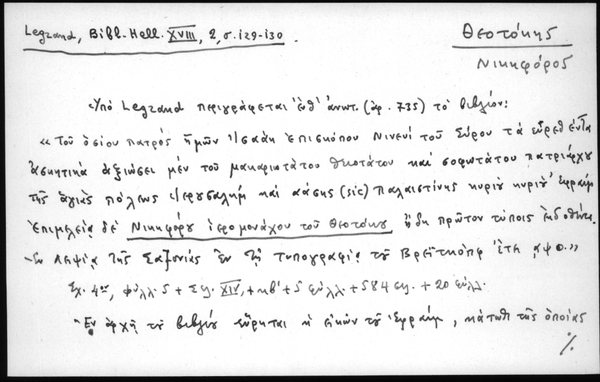 Legrand, Bibl. Hell. XVIII, 2, σ. 129-130.
Θεοτόκης
Νικηφόρος
Ὑπὸ Legrand περιγράφεται ἐνθ' ἀνωτ. (ἀρ. 735) τὸ βιβλίον:
« Τοῦ ὁσίου πατρὸς ἡμῶν Ἰσαὰκ ἐπισκόπου Νινευὶ τοῦ Σύρου τὰ εὑρεθέντα
ἀσκητικὰ ἀξιώσει μὲν τοῦ μακαριωτάτου θειοτάτου καὶ σοφωτάτου πατριάρχου
τῆς ἁγίας πόλεως Ἱερουσαλὴμ καὶ πάσης (sic) Παλαιστίνης κυρίου κυρίου Ἐφραὶμ
ἐπιμελείᾳ δὲ Νικηφόρου ἱερομονάχου τοῦ Θεοτόκου ἤδη πρῶτον τύποις ἐκδοθέντα.
- Ἐν Λειψίᾳ τῆς Σαξονίας ἐν τῇ τυπογραφίᾳ τοῦ Βρεϊτκὸπφ ἔτει αψο. »
Σχ. 4ον, φύλλ. 5 + σσ. XIV, + κβ' + 5 φύλλ. + 584 σσ. + 20 φύλλ.
Ἐν ἀρχῇ τοῦ βιβλίου εὕρηται ἡ εἰκὼν τοῦ Ἐφραίμ, κάτωθι τῆς ὁποίας
%